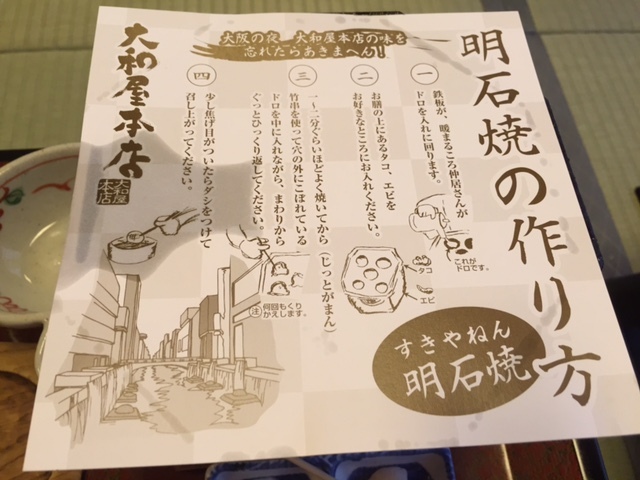 明石焼の作り方
大阪の夜 大和屋本店の味を
忘れたらあきまへん!
一
鉄板が、暖まるころ仲居さんが
ドロを入れに回ります。
これが
ドロです。
二
お膳の上にあるタコ、エビを
お好きなところにお入れください。
タコ
エビ
三
一〜二分ぐらいほどよく焼いてから(じっとがまん)
竹串を使って穴の外にこぼれている
ドロを中に入れながら、まわりから
ぐっとひっくり返してください。
注 何回もくり
かえします。
四
少し焦げ目がついたらダシをつけて
召し上がってください。
すきやねん
明石焼
大和屋本店
大和屋
本店